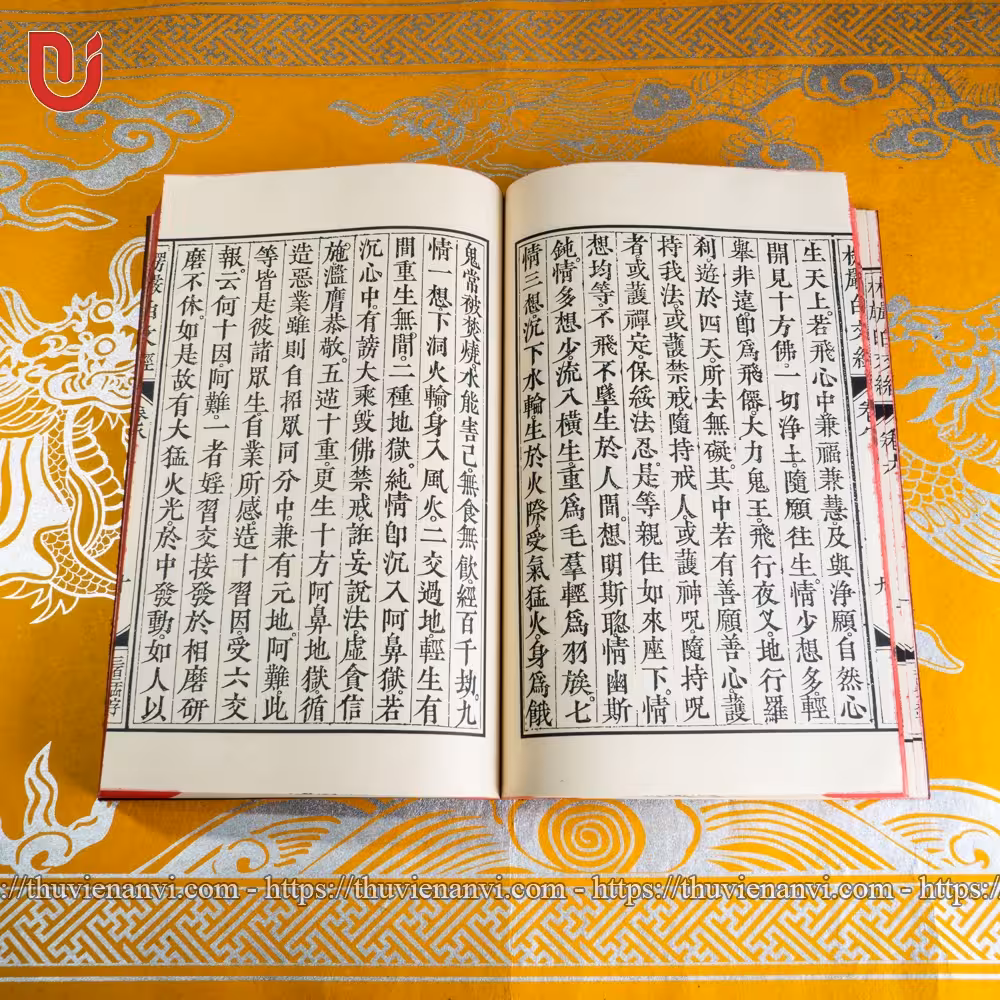 生天上。若飛心中兼福兼慧。及與淨願。自然心
開見十方佛。一切淨土。隨願往生。情少想多。輕
舉非遠。卽爲飛僊大力鬼王。飛行夜叉。地行羅
刹。遊於四天。所去無礙。其中若有善願善心。護
持我法。或護禁戒。隨持戒人。或護神呪。隨持呪
者。或護禪定。保綏法忍。是等親住如來座下。情
想均等。不飛不墜。生於人間。想明斯聰。情幽斯
鈍。情多想少。流入橫生。重爲毛羣。輕爲羽族。七
情三想。沉下水輪。生於火際。受氣猛火。身爲餓
鬼。常被焚燒。水能害己。無食無飲。經百千劫。九
情一想。下洞火輪。身入風火。二交過地。輕生有
間。重生無間。二種地獄。純情卽沉。入阿鼻獄。若
沉心中。有謗大乘。毀佛禁戒。誑妄說法。虛貪信
施。濫膺恭敬。五逆十重。更生十方阿鼻地獄。循
造惡業。雖則自招。眾同分中。兼有元地。阿難。此
等皆是彼諸眾生。自業所感。造十習因。受六交
報。云何十因。阿難。一者婬習交接。發於相磨。研
磨不休。如是故有大猛火光。於中發動。如人以
://thuvienanvi.com - https://thuvienanvi.com - https://thuvienanvi.com - https:/